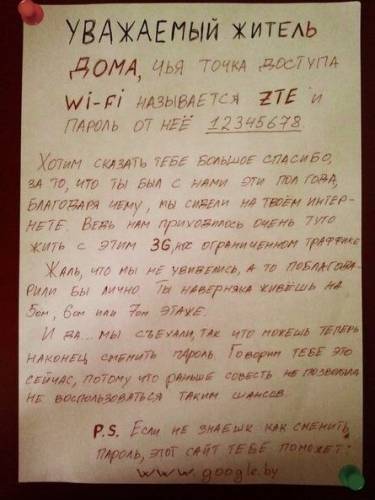 УВАЖАЕМЫЙ ЖИТЕЛЬ
ДОМА, ЧЬЯ ТОЧКА ДОСТУПА
Wi-Fi НАЗЫВАЕТСЯ ZTE И
ПАРОЛЬ ОТ НЕЁ 12345678
ХОТИМ СКАЗАТЬ ТЕБЕ БОЛЬШОЕ СПАСИБО,
ЗА ТО, ЧТО ТЫ БЫЛ С НАМИ ЭТИ ПОЛ ГОДА,
БЛАГОДАРЯ ЧЕМУ, МЫ СИДЕЛИ НА ТВОЁМ ИНТЕР-
НЕТЕ. ВЕДЬ НАМ ПРИХОДИЛОСЬ ОЧЕНЬ ТУГО
ЖИТЬ С ЭТИМ 3G, ОГРАНИЧЕННОМ ТРАФФИКЕ
ЖАЛЬ, ЧТО МЫ НЕ УВИДЕЛИСЬ, А ТО ПОБЛАГОДА-
РИЛИ БЫ ЛИЧНО ТЫ НАВЕРНЯКА ЖИВЁШЬ НА
5ом, 6ом ИЛИ 7ом ЭТАЖЕ.
И ДА... МЫ СЪЕХАЛИ, ТАК ЧТО МОЖЕШЬ ТЕПЕРЬ
НАКОНЕЦ СМЕНИТЬ ПАРОЛЬ. ГОВОРИМ ТЕБЕ ЭТО
СЕЙЧАС, ПОТОМУ ЧТО РАНЬШЕ СОВЕСТЬ НЕ ПОЗВОЛЯЛА
НЕ ВОСПОЛЬЗОВАТЬСЯ ТАКИМ ШАНСОМ.
P.S. ЕСЛИ НЕ ЗНАЕШЬ КАК СМЕНИТЬ
ПАРОЛЬ, ЭТОТ САЙТ ТЕБЕ ПОМОЖЕТ:
www.google.by